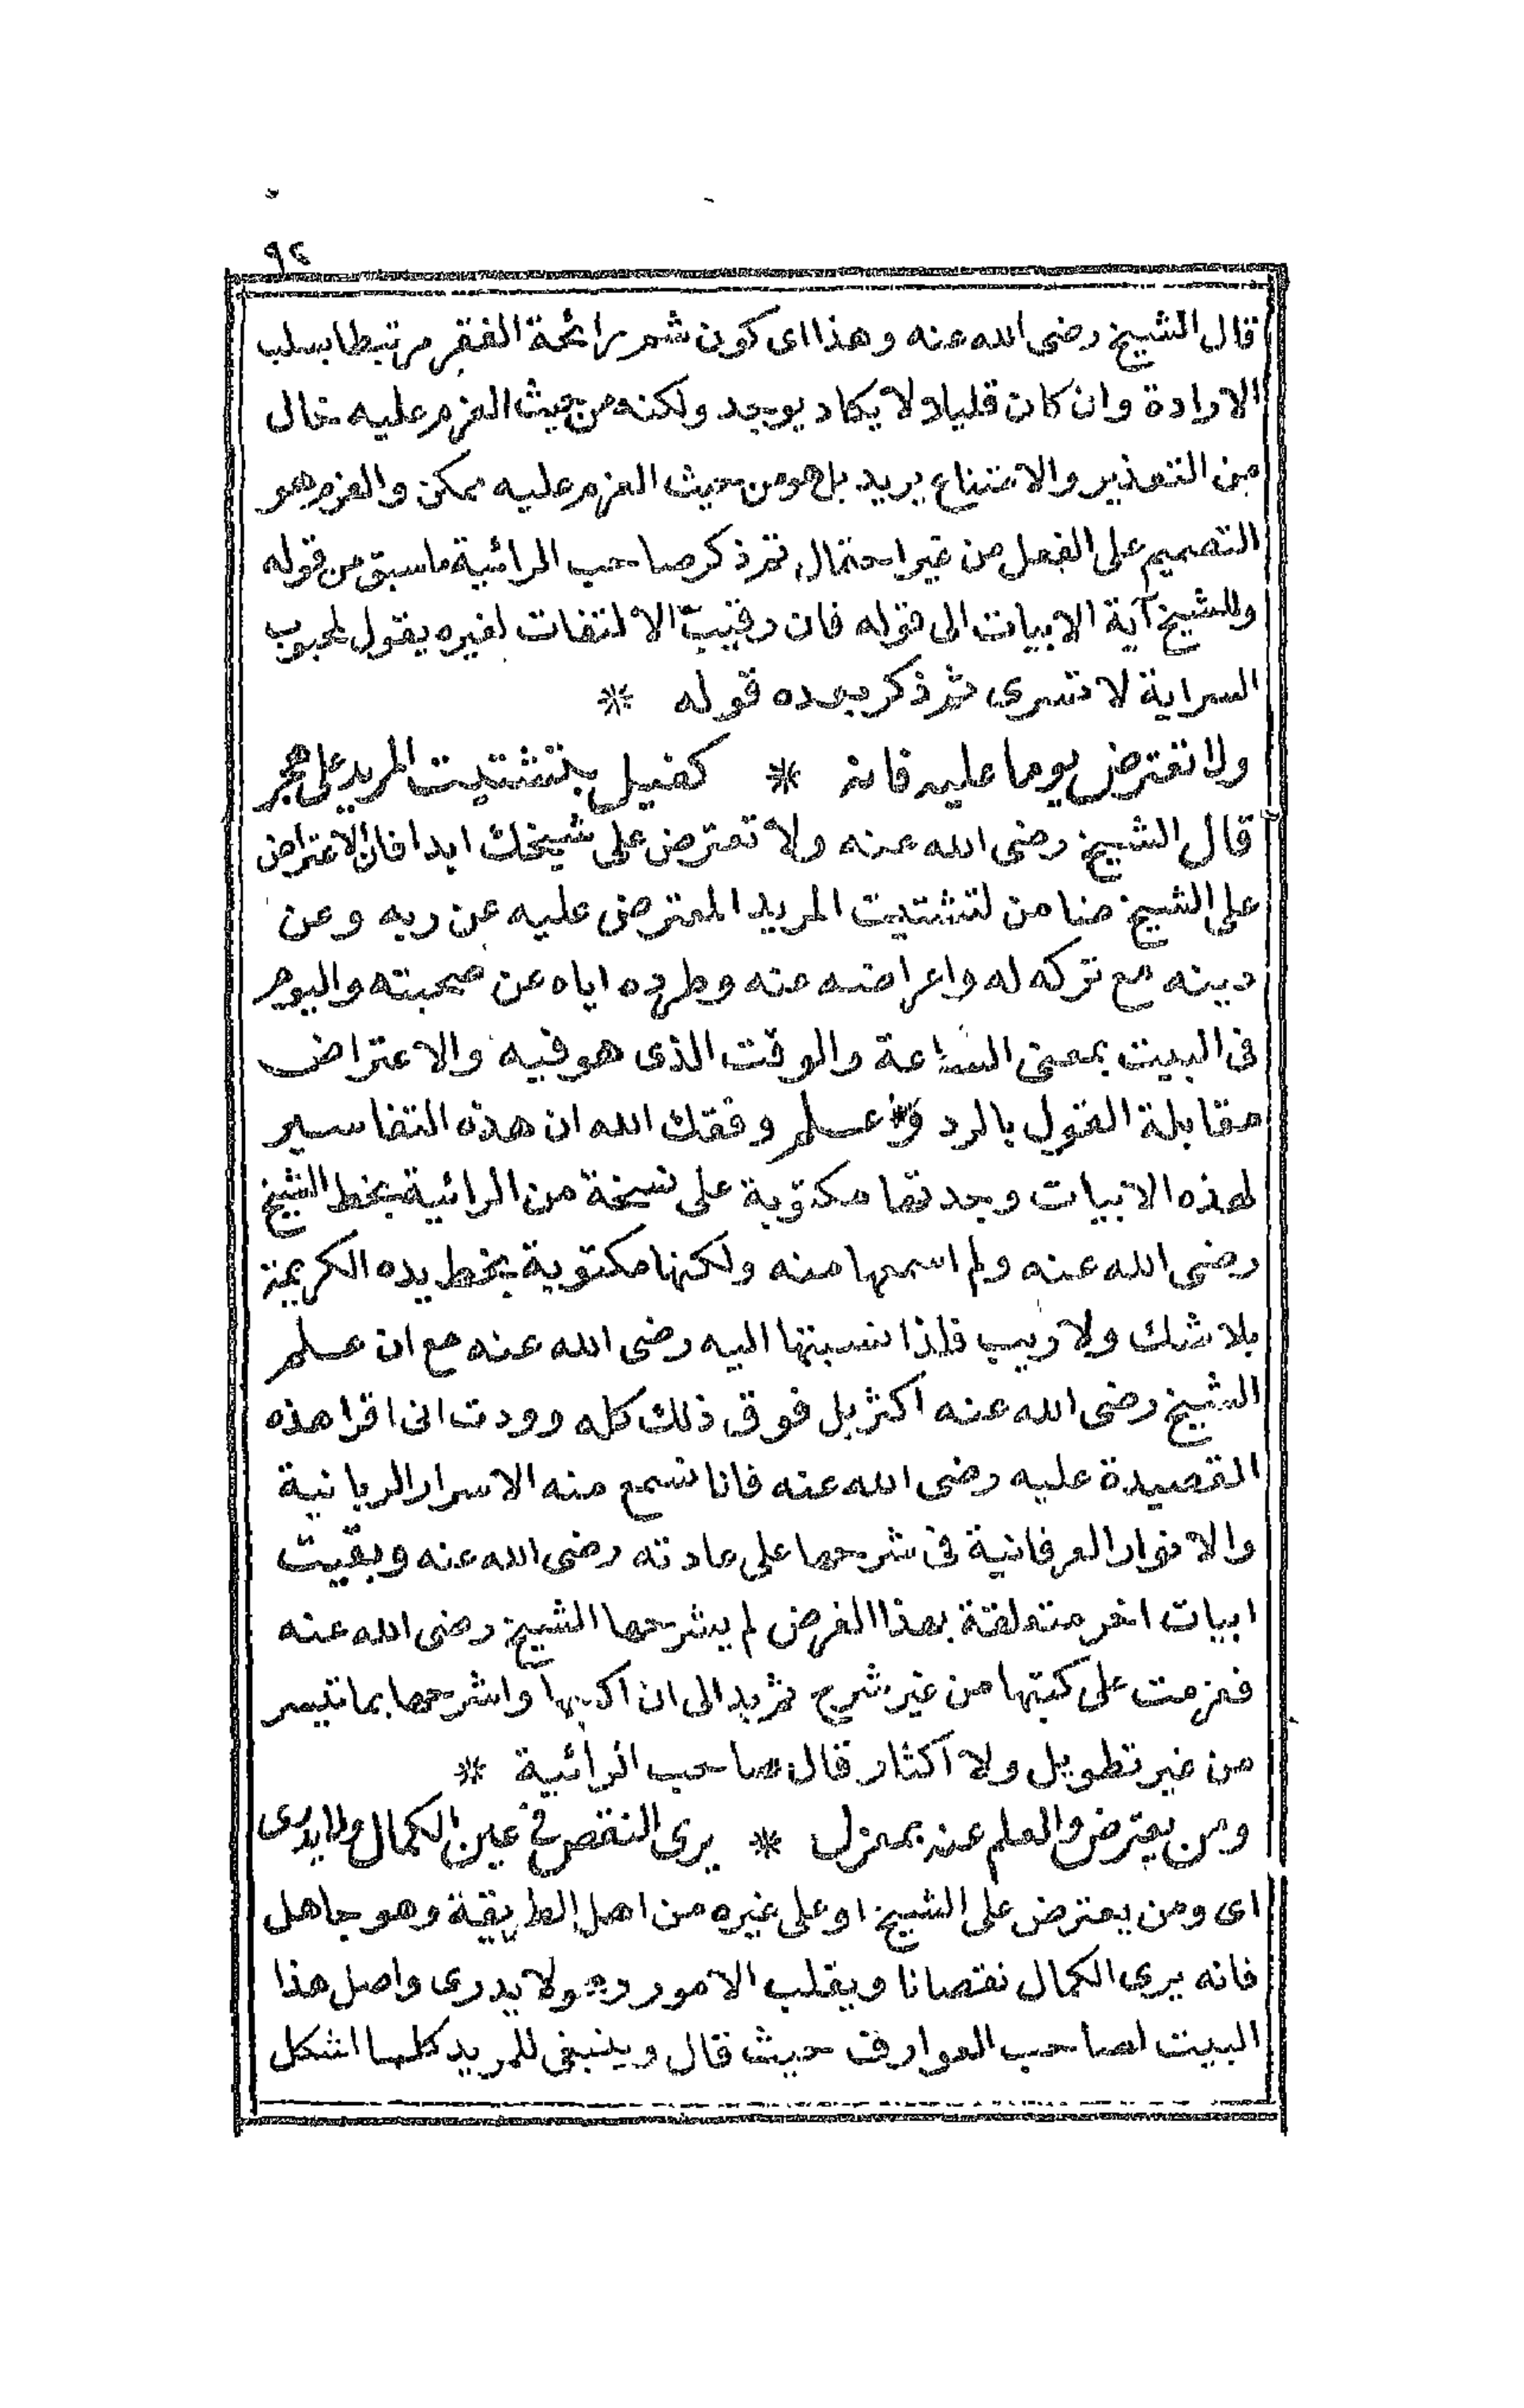 ٩٤
قال الشيخ رضى الله عنه وهذا اى كون شم رائحة الفقر مرتبطا بسلب
الارادة وان كان قليلا لا يكاد يوجد ولكنه من حيث العزم عليه خال
من التعذير والامتناع يريد بل هو من حيث العزم عليه ممكن والعزم هو
التصميم على الفعل من غير احتمال ثم ذكر صاحب الرائية ما سبق من قوله
وللشيخ آية الابيات الى قوله فان رقيب الالتفات لغيره يقول لمحبوب
السراية لا تسرى ثم ذكر بعده قوله *
ولا تعترض يوما عليه فانه * كفيل بتشتيت المريد على هجر
قال الشيخ رضى الله عنه ولا تعترض على شيخك ابدا فان الاعتراض
على الشيخ ضامن لتشتيت المريد المعترض عليه عن ربه وعن
دينه مع تركه له واعراضه عنه وطرده اياه عن صحبته واليوم
فى البيت بمعنى الساعة والوقت الذى هو فيه والاعتراض
مقابلة القول بالرد واعلم وفقك الله ان هذه التفاسير
لهذه الابيات وجدتها مكتوبة على نسخة من الرائية بخط الشيخ
رضى الله عنه ولم اسمعها منه ولكنها مكتوبة بخط يده الكريمة
بلا شك ولا ريب فلذا نسبتها اليه رضى الله عنه مع ان علم
الشيخ رضى الله عنه اكثر بل فوق ذلك كله وودت انى اقرا هذه
القصيدة عليه رضى الله عنه فانا نسمع منه الاسرار الربانية
والانوار العرفانية فى شرحها على عادته رضى الله عنه وبقيت
ابيات اخر متعلقة بهذا الغرض لم يشرحها الشيخ رضى الله عنه
فعزمت على كتبها من غير شرح ثم بدا لى ان اكتبها واشرحها بما تيسر
من غير تطويل ولا اكثار قال صاحب الرائية *
ومن يعترض والعلم عنه بمعزل * يرى النقص فى عين الكمال ولا يدرى
اى ومن يعترض على الشيخ او على غيره من اهل الطريقة وهو جاهل
فانه يرى الكمال نقصانا ويقلب الامور ولا يدرى واصل هذا
البيت لصاحب العوارف حيث قال وينبغى للمريد كلما اشكل